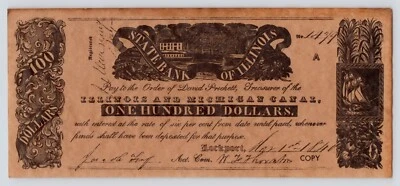 STATE BANK
OF ILLINOIS
Registered
No.
A
100
DOLLARS
Pay to the Order of David Prickett, Treasurer of the
ILLINOIS AND MICHIGAN CANAL,
ONE HUNDRED DOLLARS,
with interest at the rate of six per cent from date until paid, whenever
funds shall have been deposited for that purpose.
Lockport,
Act. Com.
COPY